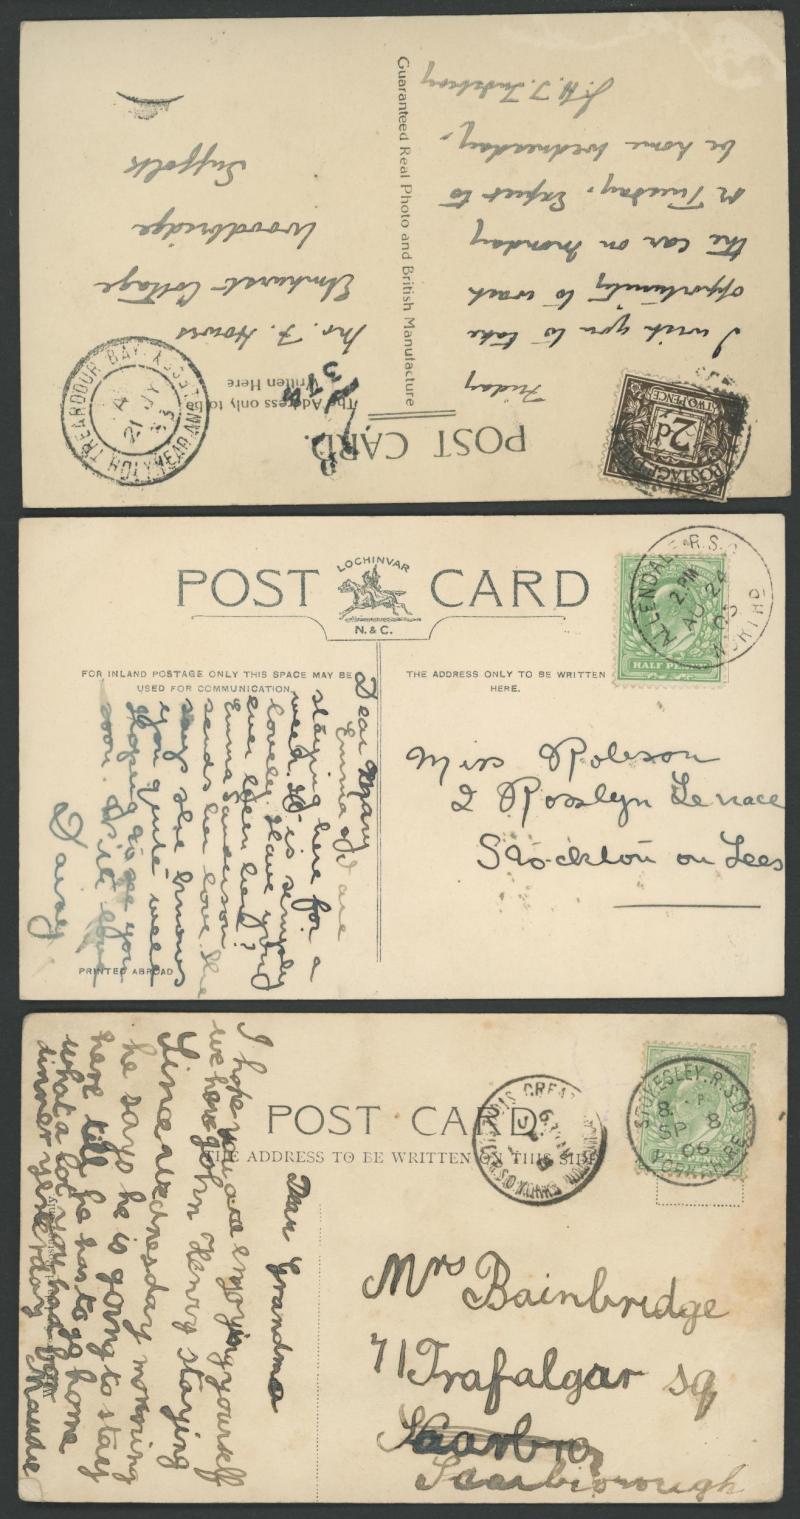 POST CARD.
The Address only to
Written Here
Guaranteed Real Photo and British Manufacture
Friday
I wish you to take
opportunity to wash
the car on Monday
or Tuesday. Expect to
be home Wednesday.
Mr. F. Howes
Elmhurst Cottage
Woodbridge
Suffolk
TREARDOUR BAY
HOLYHEAD ANG
21 JY
33
POSTAGE DUE
2d
TWO PENCE
POST CARD
LOCHINVAR
N. & C.
FOR INLAND POSTAGE ONLY THIS SPACE MAY BE
USED FOR COMMUNICATION
THE ADDRESS ONLY TO BE WRITTEN
HERE.
Dear Mary
Emma & I are
staying here for a
week. It is simply
lovely. Have you
ever been here?
Emma Sanderson
sends her love. She
says she knows
you quite well
Hoping to see you
soon. With love
PRINTED ABROAD
Miss Robson
2 Rosslyn Terrace
Stockton on Tees
ALLENDALE R.S.O
2 PM
AU 24
05
NORTHD
HALF PENNY
POST CARD
THE ADDRESS TO BE WRITTEN ON THIS SIDE
Dear Grandma
I hope you are enjoying yourself
we have John Henry staying
Since Wednesday morning
he says he is going to stay
here till he has to go home
what a lot you had for
dinner yesterday
Maudie
Mrs Bainbridge
71 Trafalgar sq
Scarbro
Scarborough
STOKESLEY. R.S.O
8
SP 8
06
YORKSHIRE